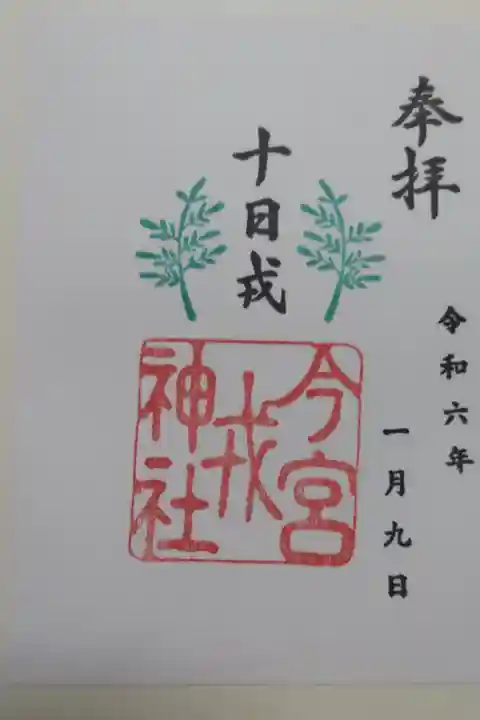 奉拝
令和六年
一月九日
十日戎
今宮
戎
神社